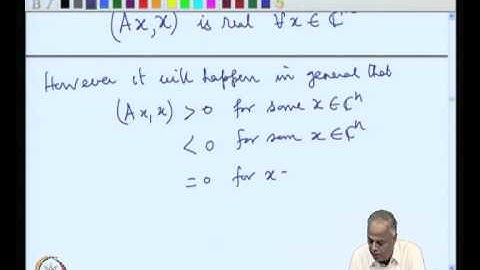 (Ax, x) is real ∀ x ∈ ℂⁿ
However it will happen in general that
(Ax, x) > 0 for some x ∈ ℂⁿ
< 0 for som x ∈ ℂⁿ
= 0 for x -